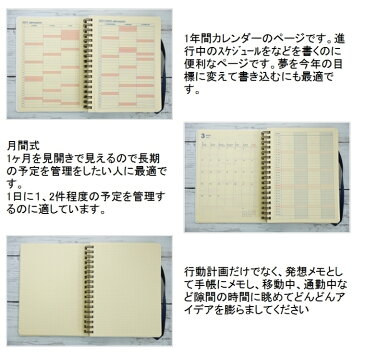 1年間カレンダーのページです。進
行中のスケジュールをなどを書くのに
便利なページです。夢を今年の目
標に変えて書き込むにも最適で
す。
月間式
1ヶ月を見開きで見えるので長期
の予定を管理をしたい人に最適で
す。
1日に1、2件程度の予定を管理す
るのに適しています。
3
行動計画だけでなく、発想メモとし
て手帳にメモし、移動中、通勤中な
ど隙間の時間に眺めてどんどんア
イデアを膨らましてください